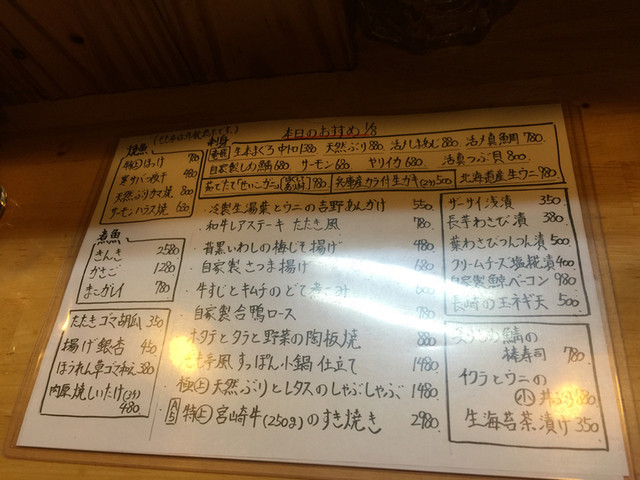 本日のおすすめ 1/8
焼魚
ほっけ 780
寒サバ一夜干 480
天然ぶりカマ焼 800
サーモンハラス焼 680
刺身
生本まぐろ 中トロ 1380 天然ぶり 880 活〆しまあじ 880 活〆真鯛 780
自家製しめ鯖 680 サーモン 680 ヤリイカ 680 活真つぶ貝 800
茹でたて「せいこガニ」 980
兵庫産カラ付生ガキ(2ケ) 500
北海道産生ウニ 980
煮魚
きんき 2580
かさご 1280
まこガレイ 780
たたきゴマ胡瓜 350
揚げ銀杏 450
ほうれん草ゴマ和え 380
肉厚焼しいたけ(3ケ) 480
・冷製生湯葉とウニの吉野あんかけ 550
・和牛レアステーキ たたき風 780
・背黒いわしの梅じそ揚げ 480
・自家製さつま揚げ 680
・牛すじとキムチのどて煮こみ
・自家製合鴨ロース
・ホタテとタラと野菜の陶板焼 880
風すっぽん小鍋仕立て 1480
・極上天然ぶりとレタスのしゃぶしゃぶ 1480
・A5 特上宮崎牛(250g)のすき焼き 2980
ザーサイ浅漬 350
長芋わさび漬 380
葉わさびつんつん漬 500
クリームチーズ塩糀漬 400
自家製鯨ベーコン 980
長崎の玉ネギ天 500
鯖の
棒寿司 780
イクラとウニの
小丼ぶり
生海苔茶漬け 350